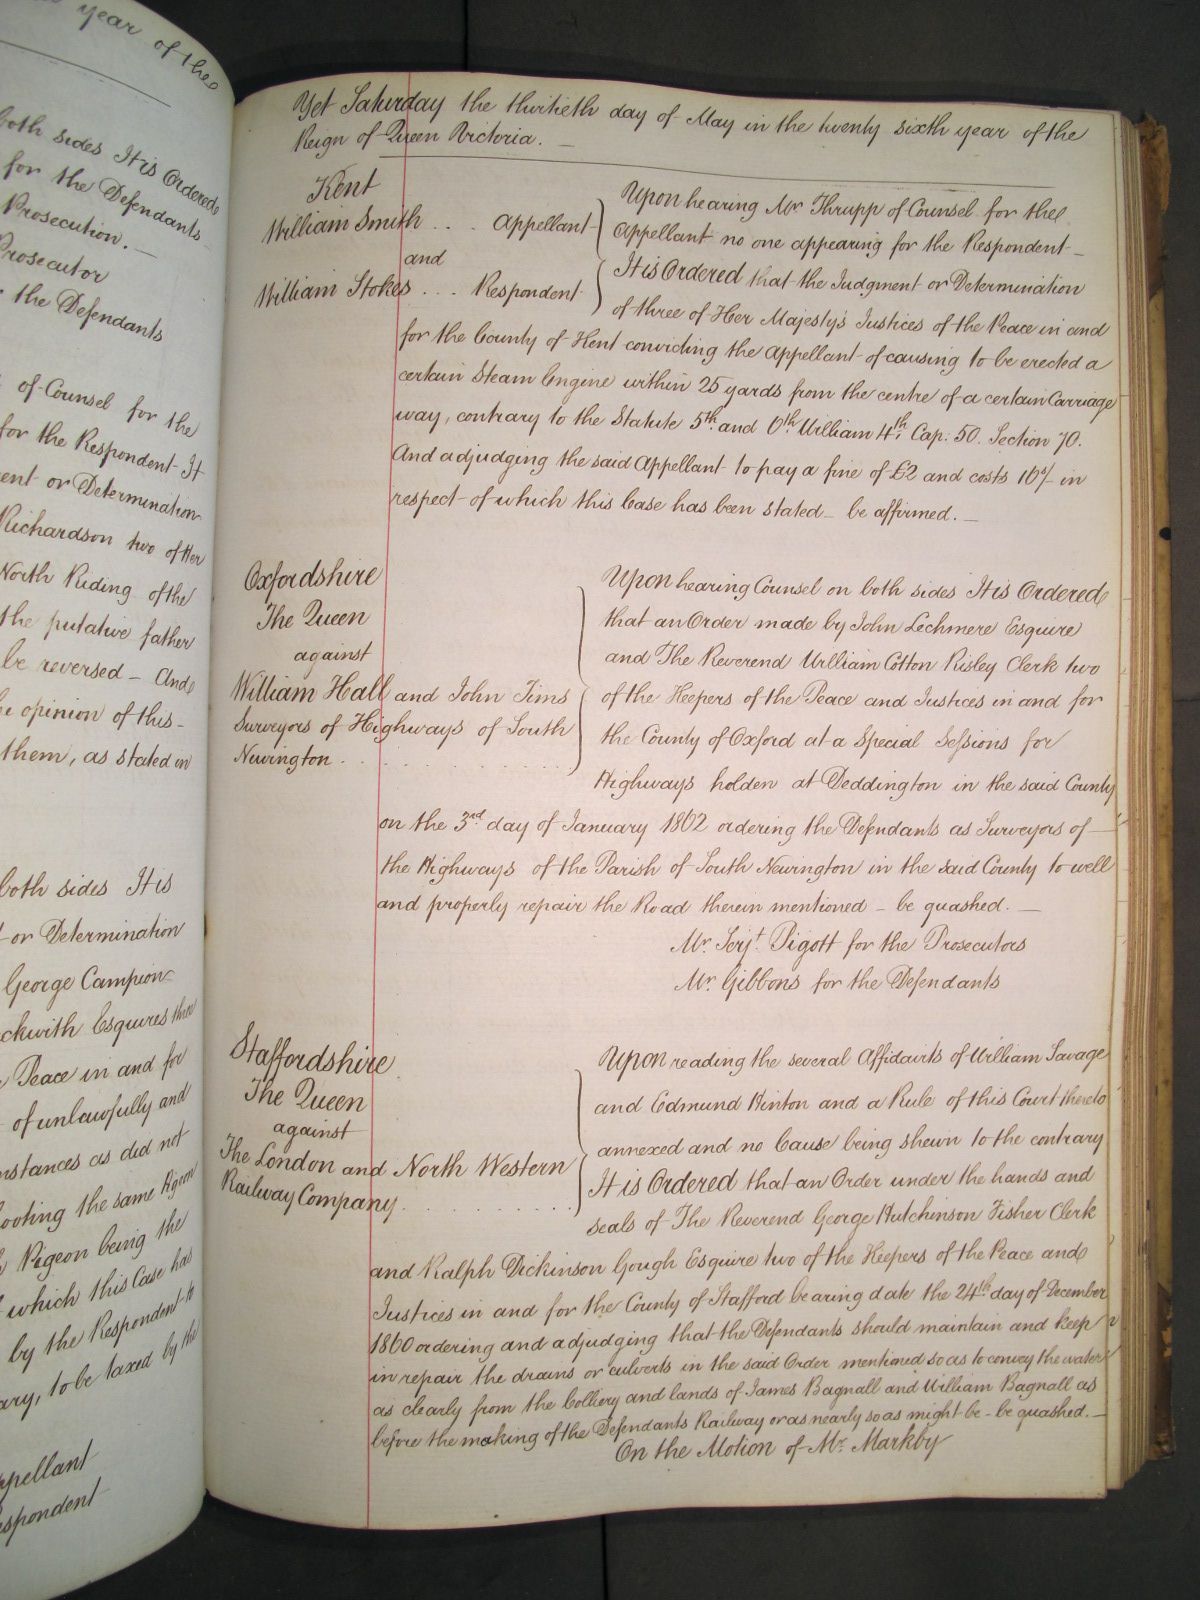 year of the
both sides It is Ordered
for the Defendants
Prosecution. —
Prosecutor
the Defendants
of Counsel for the
for the Respondent It
ent or Determination
Richardson two of Her
North Riding of the
the putative father
be reversed — And
opinion of this —
them, as stated in
both sides It is
or Determination
George Campion
ckwith Esquires three
Peace in and for
of unlawfully and
nstances as did not
ooting the same Pigeon
Pigeon being the
which this Case has
by the Respondent It
ary, to be taxed by the
Appellant
espondent
Yet Saturday the thirtieth day of May in the twenty sixth year of the
Reign of Queen Victoria. —
Kent
William Smith . . . Appellant
and
William Stokes . . . Respondent
Upon hearing Mr Thrupp of Counsel for the
Appellant no one appearing for the Respondent —
It is Ordered that the Judgment or Determination
of three of Her Majesty's Justices of the Peace in and
for the County of Kent convicting the Appellant of causing to be erected a
certain Steam Engine within 25 yards from the centre of a certain Carriage
way, contrary to the Statute 5th and 6th William 4th Cap. 50. Section 70.
And adjudging the said Appellant to pay a fine of £2 and costs 16s/- in
respect of which this Case has been stated — be affirmed. —
Oxfordshire
The Queen
against
William Hall and John Tims
Surveyors of Highways of South
Newington . . . . . . . . .
Upon hearing Counsel on both sides It is Ordered
that an Order made by John Lechmere Esquire
and The Reverend William Cotton Risley Clerk two
of the Keepers of the Peace and Justices in and for
the County of Oxford at a Special Sessions for
Highways holden at Deddington in the said County
on the 3rd day of January 1862 ordering the Defendants as Surveyors of —
the Highways of the Parish of South Newington in the said County to well
and properly repair the Road therein mentioned — be quashed. —
Mr. Serjt. Pigott for the Prosecutors
Mr. Gibbons for the Defendants
Staffordshire
The Queen
against
The London and North Western
Railway Company . . . . . . . . .
Upon reading the several Affidavits of William Savage
and Edmund Hinton and a Rule of this Court thereto
annexed and no Cause being shewn to the contrary
It is Ordered that an Order under the hands and
seals of The Reverend George Hutchinson Fisher Clerk
and Ralph Dickinson Gough Esquire two of the Keepers of the Peace and
Justices in and for the County of Stafford bearing date the 24th day of December
1860 ordering and adjudging that the Defendants should maintain and keep
in repair the drains or culverts in the said Order mentioned so as to convey the water
as clearly from the Colliery and lands of James Bagnall and William Bagnall as
before the making of the Defendants Railway or as nearly so as might be — be quashed. —
On the Motion of Mr. Markby